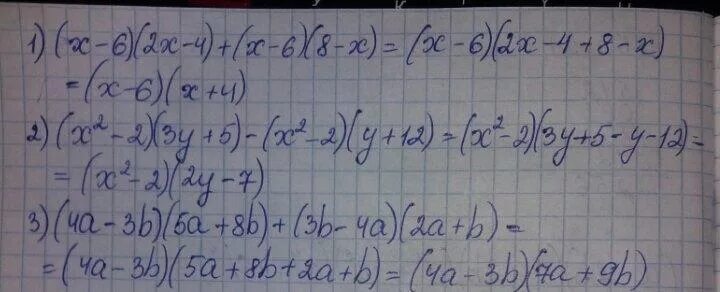 1) (x-6)(2x-4)+(x-6)(8-x)=(x-6)(2x-4+8-x)
=(x-6)(x+4)
2) (x²-2)(3y+5)-(x²-2)(y+12)=(x²-2)(3y+5-y-12)=
=(x²-2)(2y-7)
3) (4a-3b)(5a+8b)+(3b-4a)(2a+b)=
=(4a-3b)(5a+8b+2a+b)=(4a-3b)(7a+9b)